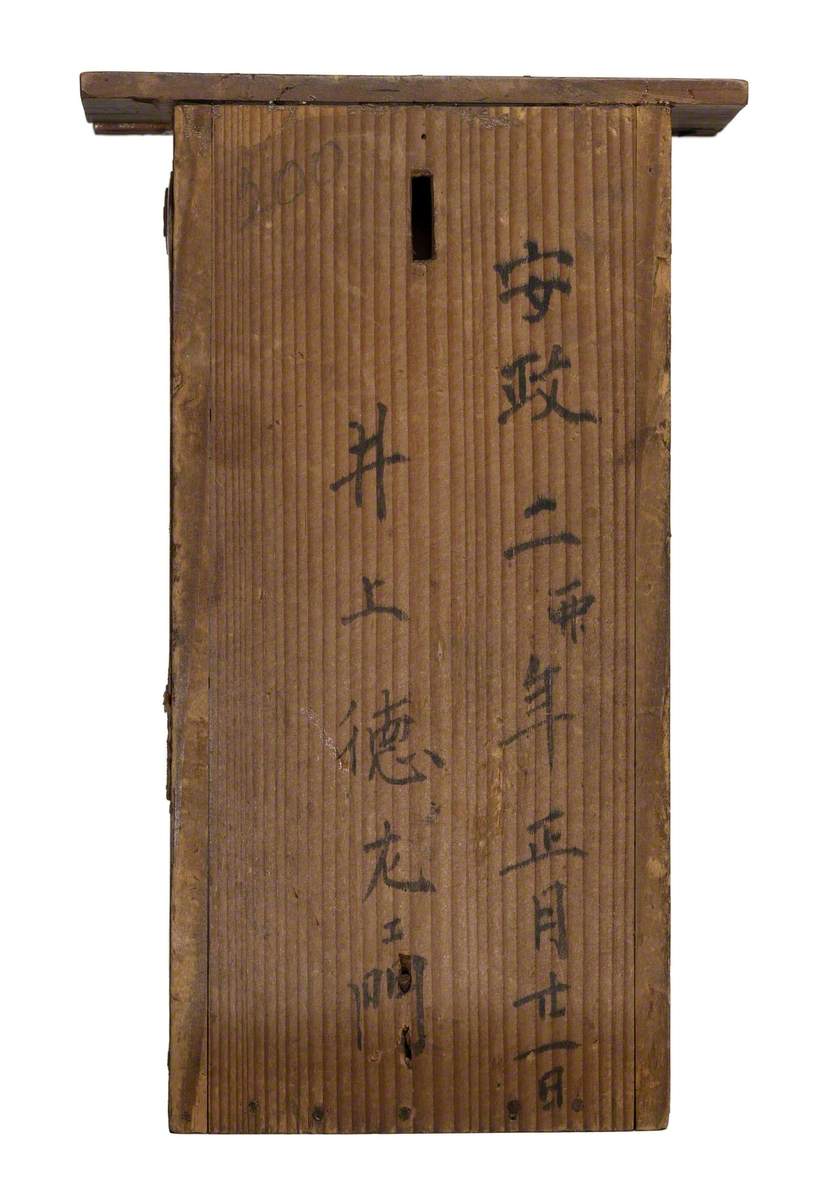 安政二年正月廿一日
井上徳左エ門